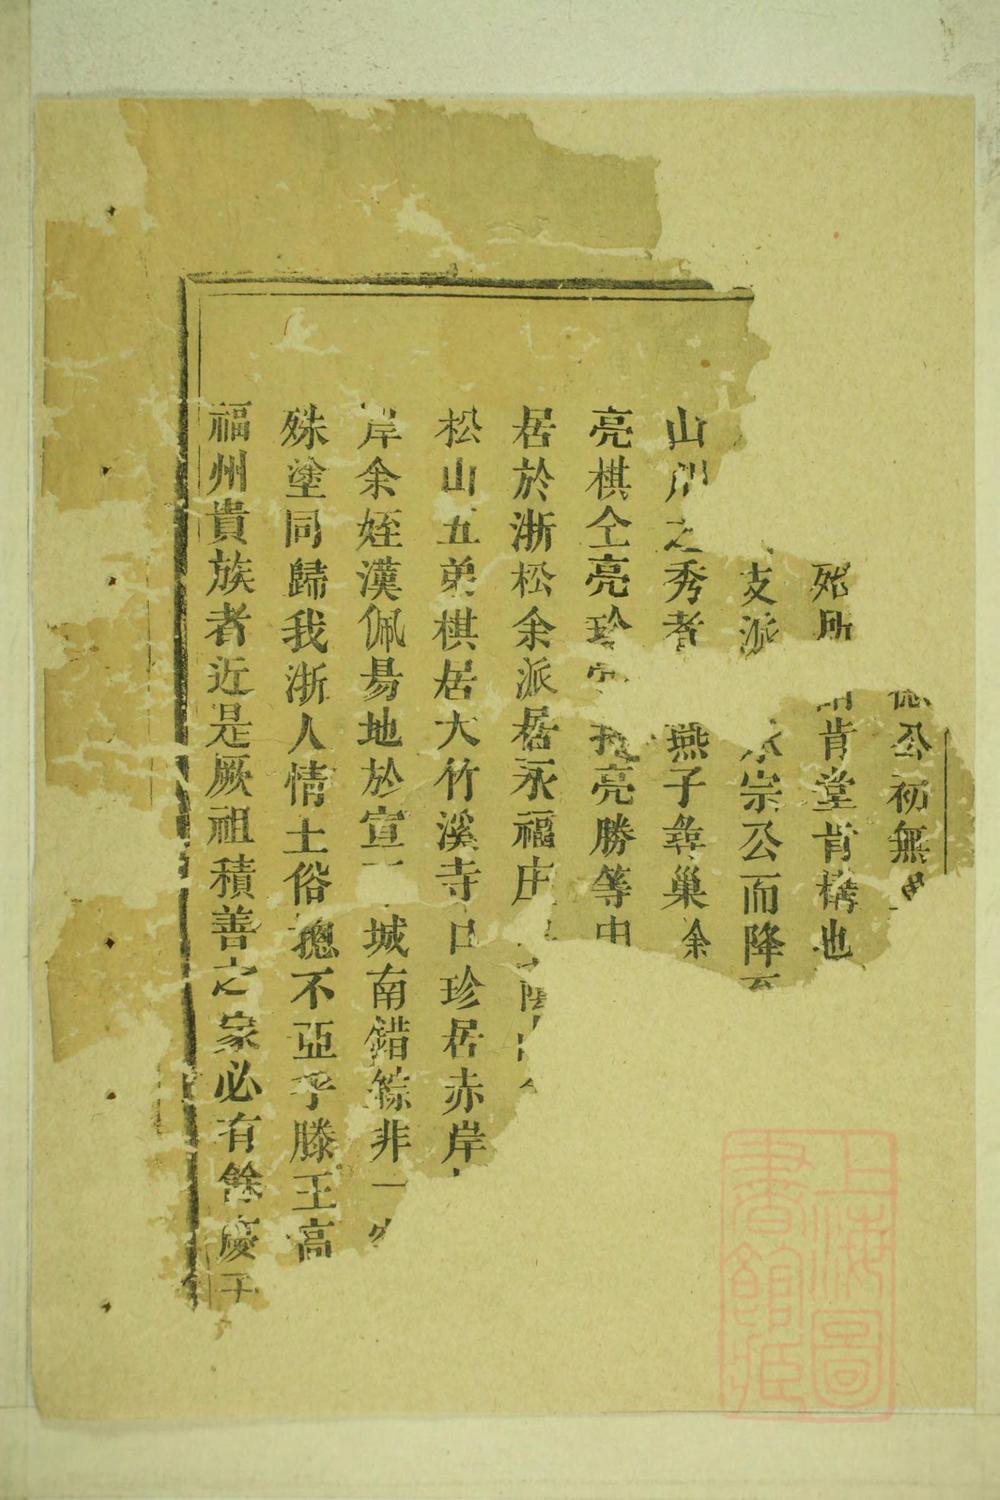 公初無
死所肯堂肯構也
支派宗公而降
山川之秀者燕子尋巢余
亮棋仝亮珍亮勝等由
居於浙松余派居永福庄
松山五弟棋居大竹溪寺口珍居赤岸
岸余姪漢佩易地於宣城南錯綜非一
殊塗同歸我浙人情土俗揔不亞乎滕王高
福州貴族者近是厥祖積善之家必有餘慶
上海圖書館藏